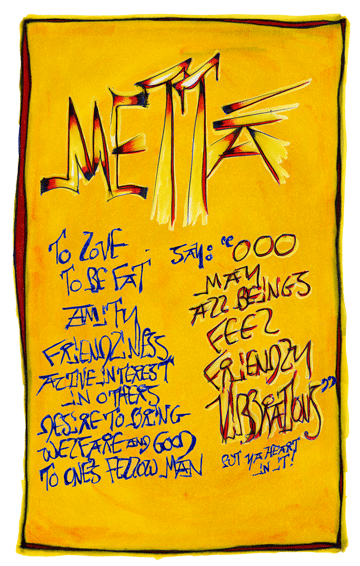 METTA
TO LOVE
TO BE FAT
AMITY
FRIENDLINESS
ACTIVE INTEREST
IN OTHERS
DESIRE TO BRING
WELFARE AND GOOD
TO ONE'S FELLOW MAN
SAY: "OOO
MAY
ALL BEINGS
FEEL
FRIENDLY
VIBRATIONS"
PUT YA HEART
IN IT!